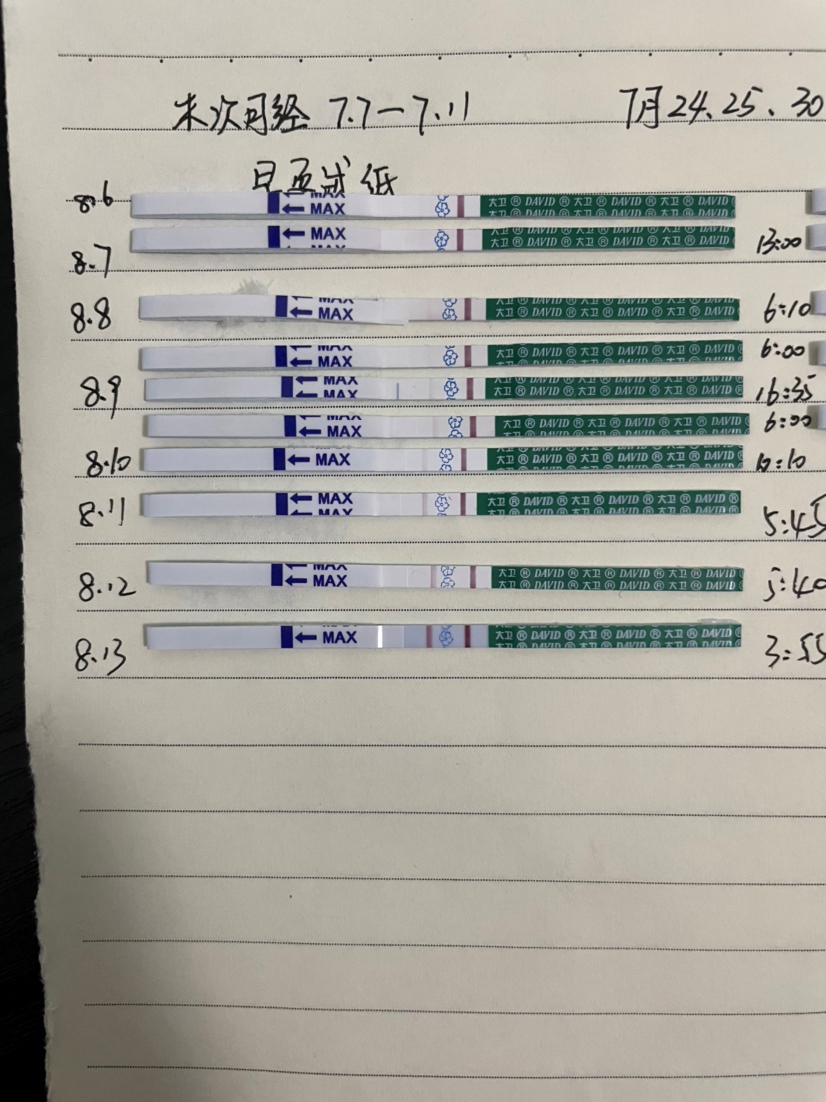 末次月经 7.7-7.11 7月24、25、30
早孕试纸
8.6 MAX 大卫 ® DAVID ® 大卫 ® DAVID ® 大卫 ® DAVID
8.7 MAX 大卫 ® DAVID ® 大卫 ® DAVID ® 大卫 ® DAVID 13:00
8.8 MAX 大卫 ® DAVID ® 大卫 ® DAVID ® 大卫 ® DAVID 6:10
MAX 大卫 ® DAVID ® 大卫 ® DAVID ® 大卫 ® DAVID 6:00
8.9 MAX 大卫 ® DAVID ® 大卫 ® DAVID ® 大卫 ® DAVID 16:35
MAX 大卫 ® DAVID ® 大卫 ® DAVID ® 大卫 ® DAVID 6:00
8.10 MAX 大卫 ® DAVID ® 大卫 ® DAVID ® 大卫 ® DAVID 10:10
8.11 MAX 大卫 ® DAVID ® 大卫 ® DAVID ® 大卫 ® DAVID ® 5:45
8.12 MAX 大卫 ® DAVID ® 大卫 ® DAVID ® 大卫 ® DAVID 5:40
8.13 MAX 大卫 ® DAVID ® 大卫 ® DAVID ® 大卫 ® DAVID 3:55